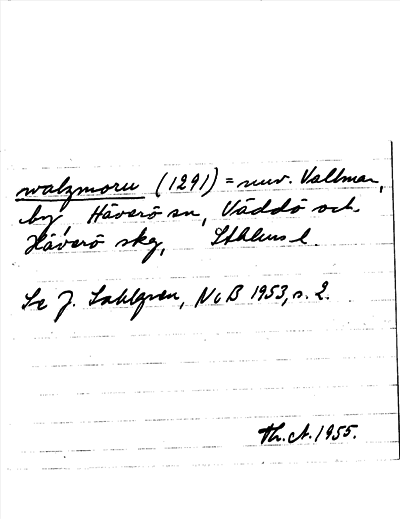 walzmoru (1291) = nuv. Vallmar,
by, Häverö sn, Väddö och
Häverö skg, Sthlms l.
Se J. Sahlgren, NoB 1953, s. 2.
Th. A. 1955.